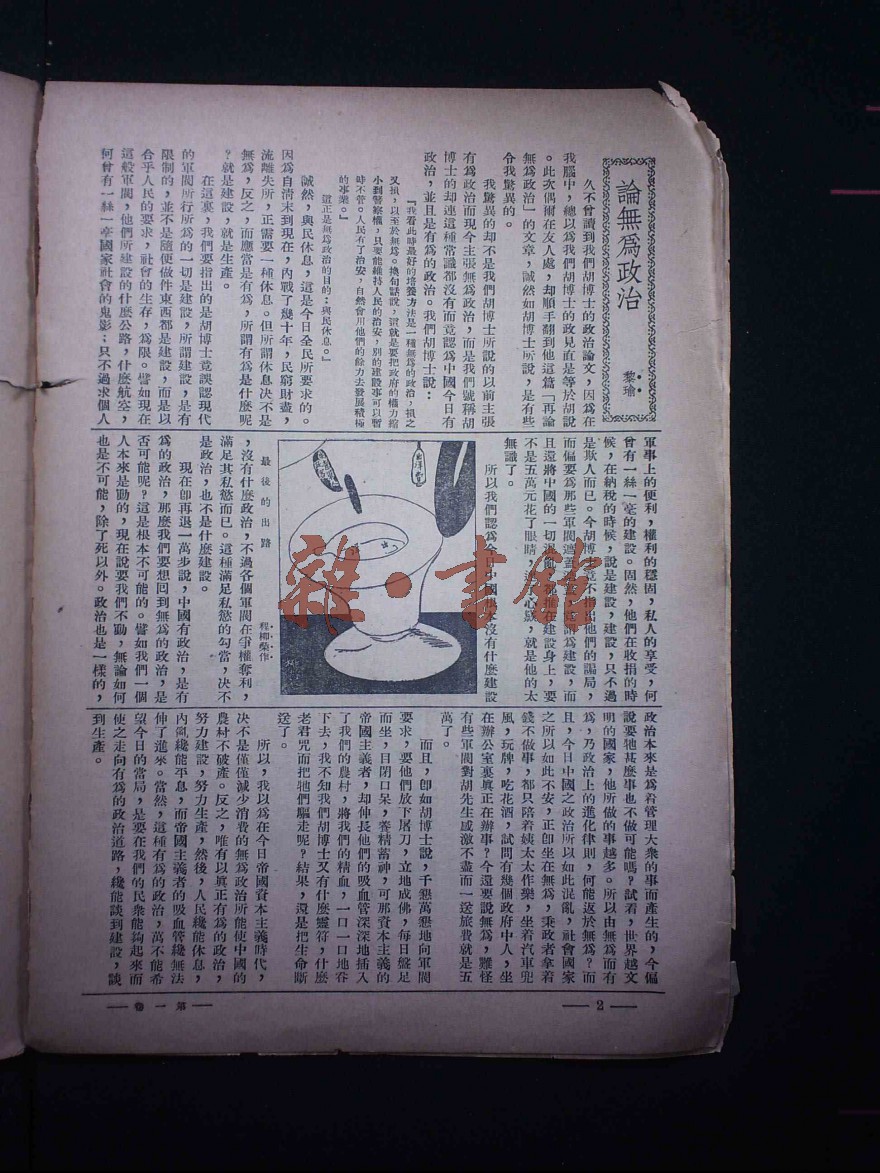 論無爲政治
黎瑜
久不曾讀到我們胡博士的政治論文,因爲在
我腦中,總以爲我們胡博士的政見直是等於胡說
。此次偶爾在友人處,却順手翻到他這篇「再論
無爲政治」的文章,誠然如胡博士所說,是有些
令我驚異的。
我驚異的却不是我們胡博士所說的以前主張
有爲政治而現今主張無爲政治,而是我們號稱胡
博士的却連這種常識都沒有而竟認爲中國今日有
政治,並且是有爲的政治。我們胡博士說:
『我看此時最好的培養方法是一種無爲的政治,損之
又損,以至於無爲。換句話說,這就是要把政府的權力縮
小到警察權,只要能維持人民的治安,別的建設事可以暫
時不管。人民有了治安,自然會用他們的餘力去發展積極
的事業。』
這正是無爲政治的目的:與民休息。』
誠然,與民休息,這是今日全民所要求的。
因爲自清末到現在,內戰了幾十年,民窮財盡,
流離失所,正需要一種休息。但所謂休息决不是
無爲,反之,而應當是有爲,所謂有爲是什麼呢
?就是建設,就是生產。
在這裏,我們要指出的是胡博士竟誤認現代
的軍閥所行所爲的一切是建設,所謂建設,是有
限制的,並不是隨便做件東西都是建設,而是以
合乎人民的要求,社會的生存,爲限。譬如現在
這般軍閥,他們所建設的什麼公路,什麼航空,
何曾有一絲一毫國家社會的鬼影;只不過求個人
軍事上的便利,權利的穩固,私人的享受,何
曾有一絲一毫的建設。固然,他們在收捐的時
候,在納稅的時候,說是建設,建設,只不過
是欺人而已。今胡博士竟不指出他們的騙局,
而偏要爲那些軍閥遮蓋
爲建設,而
且還將中國的一切混亂
推在建設身上,要
不是五萬元花了眼睛,
心竅,就是他的太
無識了。
所以我們認爲今日中國
本沒有什麼建設
最後的出路
程柳榮作
,沒有什麼政治,不過各個軍閥在爭權奪利,
滿足其私慾而已。這種滿足私慾的勾當,决不
是政治,也不是什麼建設。
現在卽再退一萬步說,中國有政治,是有
爲的政治,那麼我們要想回到無爲的政治,是
否可能呢?這是根本不可能的。譬如我們一個
人本來是動的,現在說要我們不動,無論如何
也是不可能,除了死以外。政治也是一樣的,
政治本來是爲着管理大衆的事而產生的,今偏
說要牠甚麼事也不做可能嗎?試看,世界越文
明的國家,他所做的事越多。所以由無爲而有
爲,乃政治上的進化律則,何能返於無爲?而
且,今日中國之政治所以如此混亂,社會國家
之所以如此不安,正卽坐在無爲,秉政者拿着
錢不做事,都只陪着姨太太作樂,坐着汽車兜
風,玩牌,吃花酒,試問有幾個政府中人,坐
在辦公室裏眞正在辦事?今還要說無爲,難怪
有些軍閥對胡先生感激不盡而一送旅費就是五
萬了。
而且,卽如胡博士說,千懇萬懇地向軍閥
要求,要他們放下屠刀,立地成佛,每日盤足
而坐,目閉口呆,養精蓄神,可那資本主義的
帝國主義者,却伸長他們的吸血管深深地插入
了我們的農村,將我們的精血,一口一口地吞
下去,我不知我們胡博士又有什麼靈符,什麼
老君咒而把牠們驅走呢?結果,還是把生命斷
送了。
所以,我以爲在今日帝國資本主義時代,
决不是僅僅減少消費的無爲政治所能使中國的
農村不破產。反之,唯有以眞正有爲的政治,
努力建設,努力生產,然後,人民纔能休息,
內亂纔能平息,而帝國主義者的吸血管纔無法
伸了進來。當然,這種有爲的政治,萬不能希
望今日的當局,是要在我們的民衆能夠起來而
使之走向有爲的政治道路,纔能談到建設,談
到生產。
雜·書館
第一卷
2